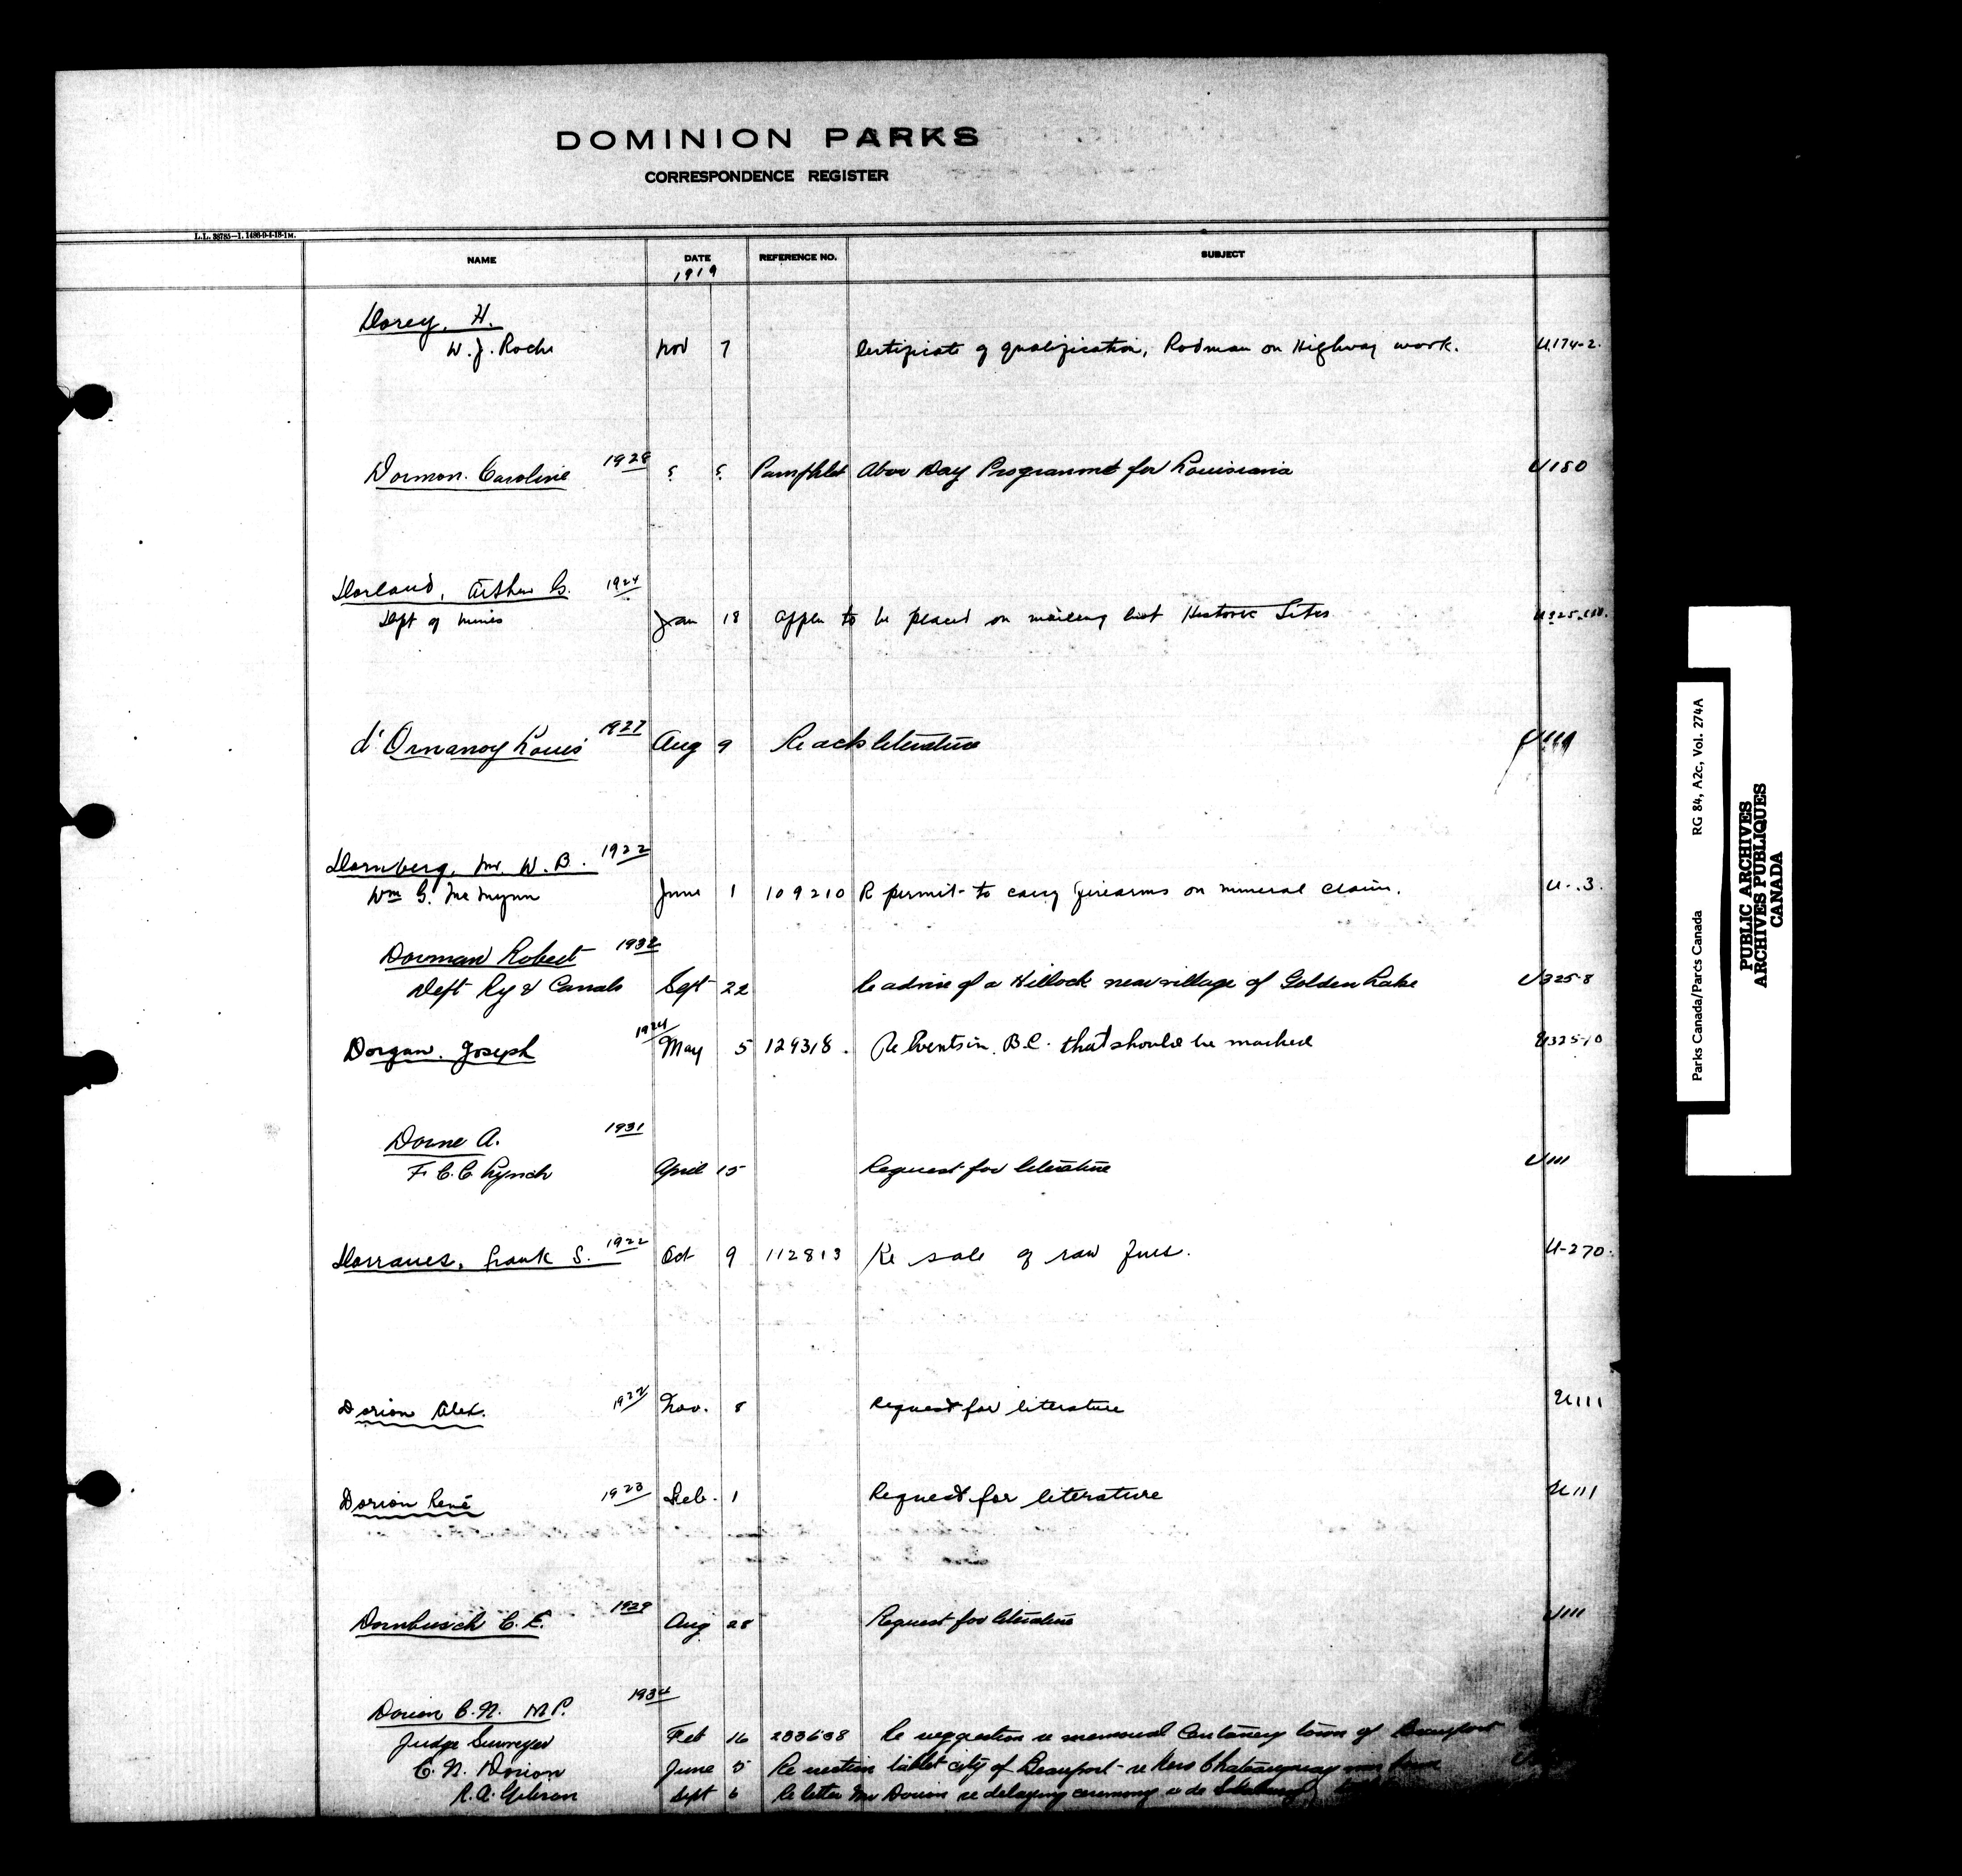 DOMINION PARKS
CORRESPONDENCE REGISTER
L.L. 38785—1. 1486-9-4-18-1M.
NAME DATE REFERENCE NO. SUBJECT
1919
Dorey, H.
W. J. Roche Nov 7 Certificate of qualification, Rodman on Highway work. U.174-2.
Dormon. Caroline 1928 ? ? Pamphlet Abor Day Programme for Louisiana U180
Dorland, Arthur G. 1924
Dept of Mines Jan 18 Appln to be placed on mailing list Historic Sites
d'Ornanoy Louis 1927 Aug 9 Re ack literature U111
Dornberg, Mr. W. B. 1922
Wm G. McMynn June 1 109210 R permit to carry firearms on mineral claim. U-.3.
Dorman Robert 1932
Dept Ry & Canals Sept 22 Re advise of a Hillock near village of Golden Lake U325-8
Dorgan. Joseph 1924 May 5 129318. Re Events in B.C. that should be marked U325-10
Dorne A. 1931
F. C. C. Lynch April 15 Request for literature U111
Frank S. 1922 Oct 9 112813 Re sale of raw furs. U-270.
Dorion Alex. 1922 Nov. 8 Request for literature U111
Dorion René 1923 Feb. 1 Request for literature U111
Dornbusch C. E. 1929 Aug 28 Request for literature U111
Dorion C. N. M.P. 1934
Judge Surveyer Feb 16 Re suggestion re memorial Centenary town of Beauport
C. N. Dorion June 5 Re erection tablet city of Beauport - re
R. A. Gibson Sept 6 Re letter Mr Dorion re delaying ceremony re de
Parks Canada/Parcs Canada RG 84, A2c, Vol. 274A
PUBLIC ARCHIVES
ARCHIVES PUBLIQUES
CANADA